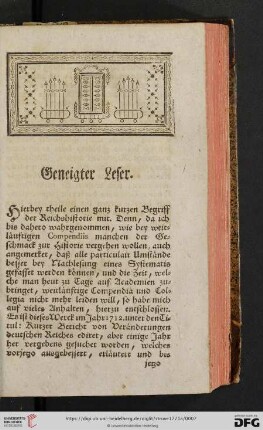 Geneigter Leser.
Hierbey theile einen ganz kurzen Begriff
der Reichshistorie mit. Denn, da ich
bis dahero wahrgenommen, wie bey weit-
läuftigen Compendiis manchen der Ge-
schmack zur Historie vergehen wollen, auch
angemerket, daß alle particulair Umstände
besser bey Nachlesung eines Systematis
gefasset werden können, und die Zeit, wel-
che man heut zu Tage auf Academien zu-
bringet, weitläuftige Compendia und Col-
legia nicht mehr leiden will, so habe mich
auf vieles Anhalten, hierzu entschlossen.
Es ist dieses Werck im Jahr 1712. unter dem Ti-
tul: Kurzer Bericht von Veränderungen
deutschen Reiches editet, aber einige Jahr
her vergebens gesuchet worden, welches
vorjezo ausgebessert, erläutert und bis
jezo
UNIVERSITÄTS-
BIBLIOTHEK
HEIDELBERG
© Universitätsbibliothek Heidelberg
Gefördert durch
DFG